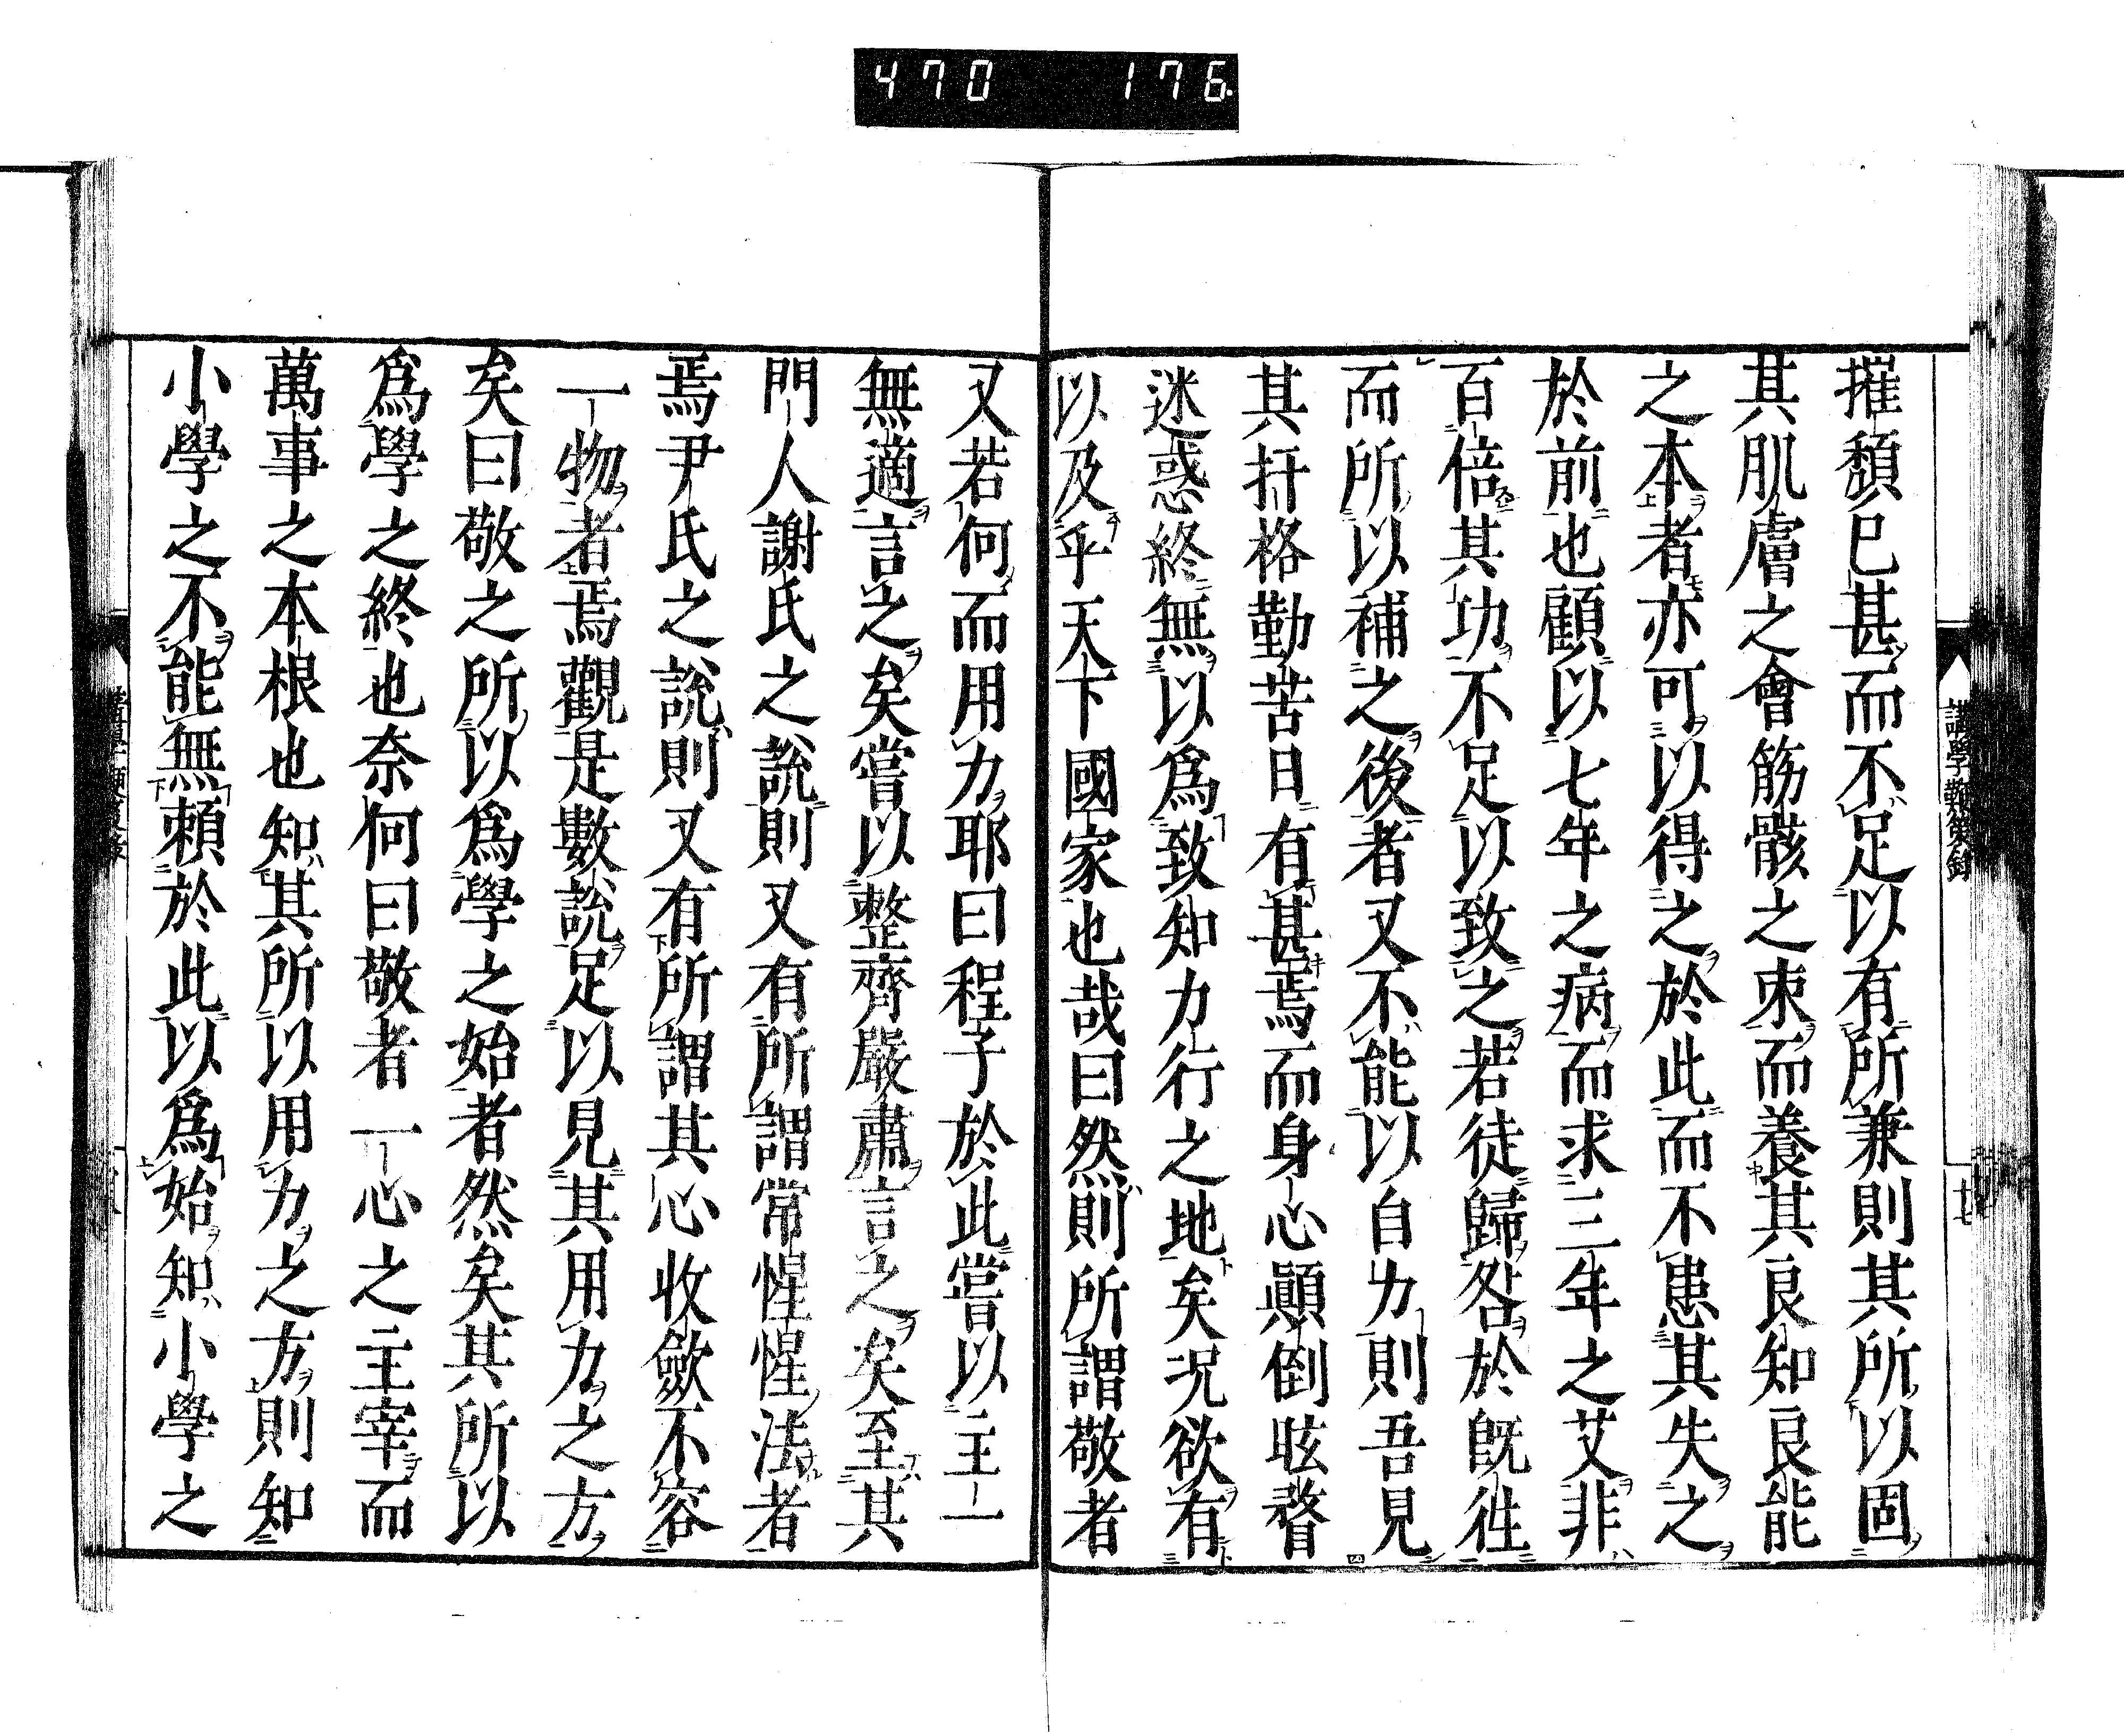 470 176
講學鞭策錄
十七
摧頽巳甚而不足以有所兼則其所以固
其肌膚之會筋骸之束而養其良知良能
之本者亦可以得之於此而不患其失之
於前也顧以七年之病而求三年之艾非
百倍其功不足以致之若徒歸咎於既徃
而所以補之後者又不能以自力則吾見
其扞格勤苦日有甚焉而身心顚倒眩瞀
迷惑終無以爲致知力行之地矣况欲有
以及乎天下國家也哉曰然則所謂敬者
又若何而用力耶曰程子於此嘗以主一
無適言之矣嘗以整齊嚴肅言之矣至其
門人謝氏之說則又有所謂常惺惺法者
焉尹氏之說則又有所謂其心收斂不容
一物者焉觀是數說足以見其用力之方
矣曰敬之所以爲學之始者然矣其所以
爲學之終也奈何曰敬者一心之主宰而
萬事之本根也知其所以用力之方則知
小學之不能無賴於此以爲始知小學之